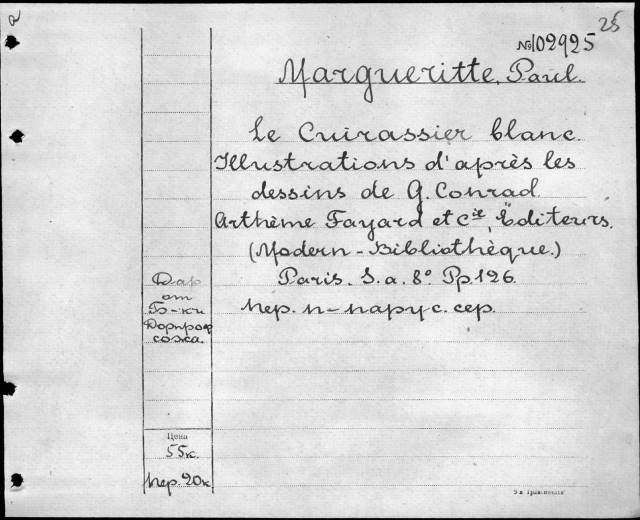 a
25
№102925
Margueritte, Paul.
Le Cuirassier blanc.
Illustrations d'après les
dessins de G. Conrad.
Arthème Fayard et Cie, Éditeurs.
(Modern-Bibliothèque.)
Paris. S.a. 8° Pp. 126.
Дар
от
Б-ки
Дорпроф
сожа.
пер. п-парус. сер.
Цена
55к.
пер. 20к